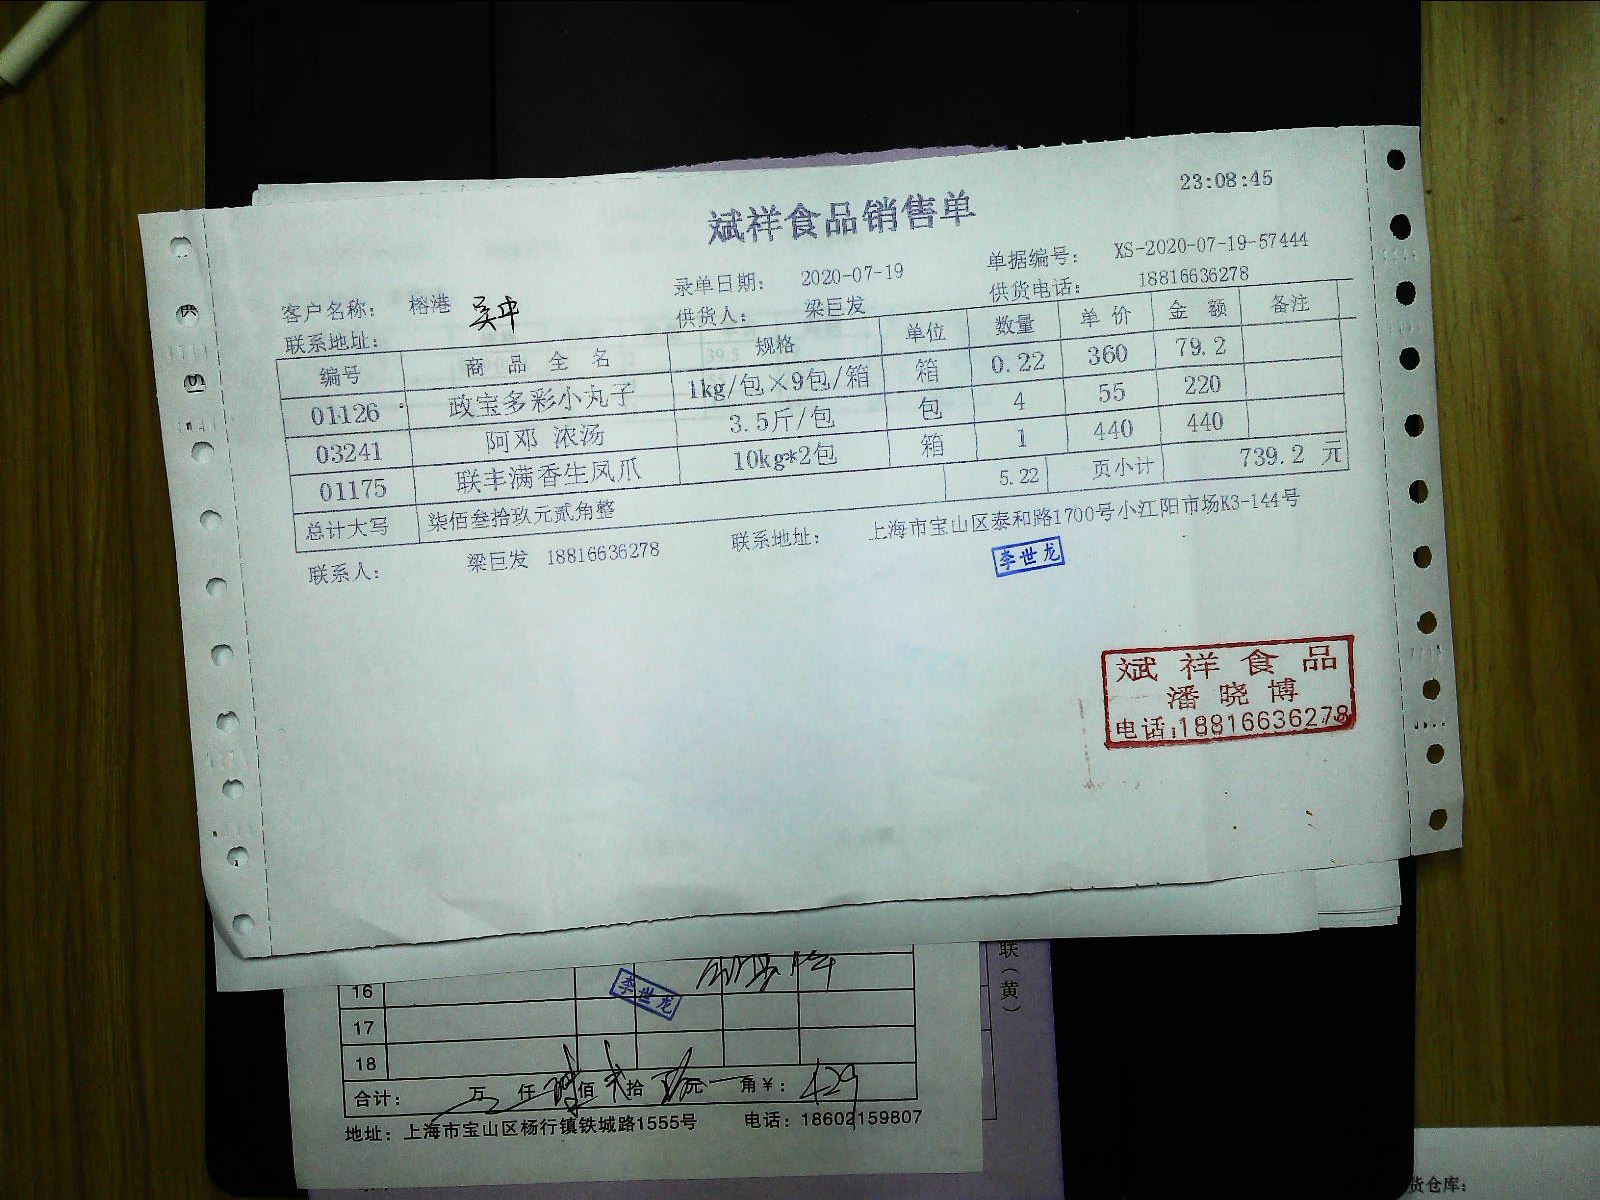 23:08:45
斌祥食品销售单
录单日期: 2020-07-19 单据编号: XS-2020-07-19-57444
客户名称: 榕港 吴中 供货人: 梁巨发 供货电话: 18816636278
联系地址:
编号 商品全名 规格 单位 数量 单价 金额 备注
01126 政宝多彩小丸子 1kg/包×9包/箱 箱 0.22 360 79.2
03241 阿邓 浓汤 3.5斤/包 包 4 55 220
01175 联丰满香生凤爪 10kg*2包 箱 1 440 440
总计大写 柒佰叁拾玖元贰角整 5.22 页小计 739.2 元
联系人: 梁巨发 18816636278 联系地址: 上海市宝山区泰和路1700号小江阳市场K3-144号
李世龙
斌祥食品
潘晓博
电话:18816636278
联(黄)
16
李世龙
17
18
合计: 万 仟 佰 拾 元 角¥: 429
地址: 上海市宝山区杨行镇铁城路1555号 电话: 18602159807
货仓库: